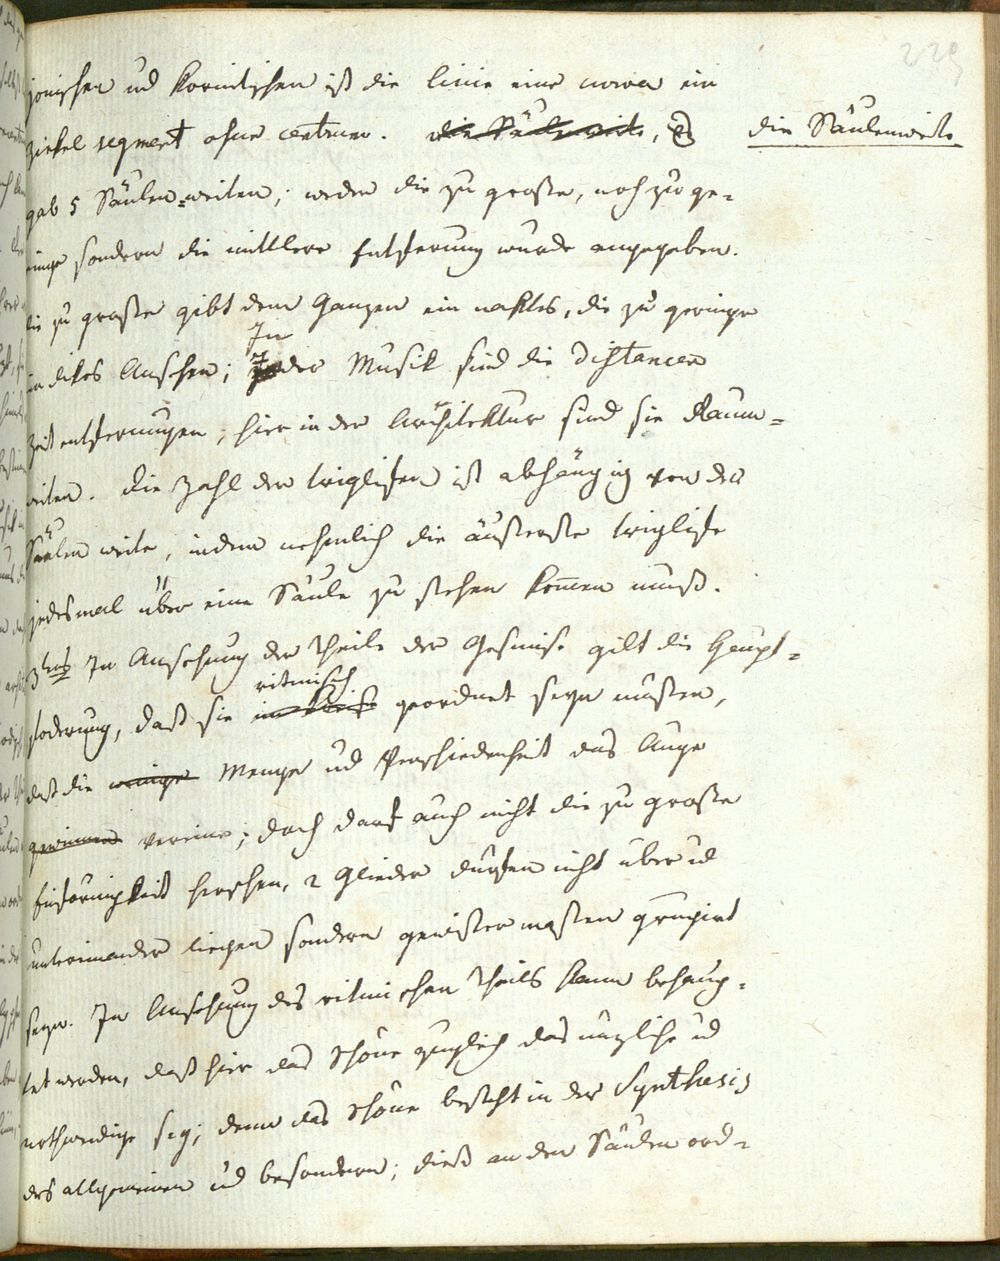 229
jonischen ud korintischen ist die linie eine curva ein
zirkel segment ohne centrum. die Säulenweite, Es
die Säulenweite
gab 5 Säulen-weiten; weder die zu große, noch zu ge-
ringe sondern die mittlere Entfernung wurde angegeben.
die zu große gibt dem Ganzen ein naktes, die zu geringe
ein dikes Ansehen; In der Musik sind die Distancen
Zeitentfernungen, hier in der Architektur sind sie Raum-
weiten. die Zahl der triglifen ist abhängig von der
Säulen weite, indem nehmlich die äusserste triglife
jedesmal über eine Säule zu stehen kommen muß.
3tens In Ansehung der Theile der Gesimse gilt die Haupt-
foderung, daß sie ritmisch geordnet seyn müssen,
daß die einige Menge ud Verschiedenheit das Auge
gewinnen vereine; doch darf auch nicht die zu große
Einförmigkeit herschen, 2 Glieder dürfen nicht über ud
untereinander liegen sondern gewissermassen grupirt
seyn. In Ansehung des ritmischen Theils kann behaup-
tet werden, daß hier das Schöne zugleich das nüzliche ud
nothwendige sey; denn das Schöne besteht in der Synthesis
des allgemeinen ud besondern; dieß an den Säulen ord-